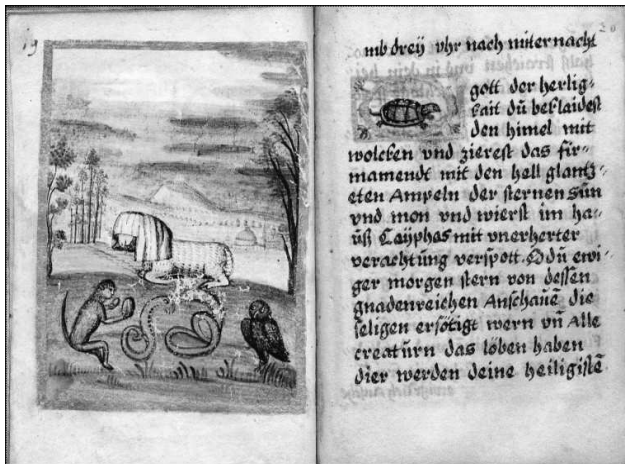 19
20
mb dreÿ vhr nach miter nacht
gott der herlig-
kait dŭ beklaidest
den himel mit
wolcken vnd zierest das fir-
mamendt mit den hell glantz-
eten Ampeln der sternen sŭn
vnd mon vnd wierst im ha-
ŭß Caÿphas mit vnerherter
verachtŭng verspott. O dŭ ewi-
ger morgen stern von dessen
gnadenreichen Anschaŭē die
seligen ersötigt wern vn̄ Alle
creatŭrn das löben haben
dier werden deine heiligistē